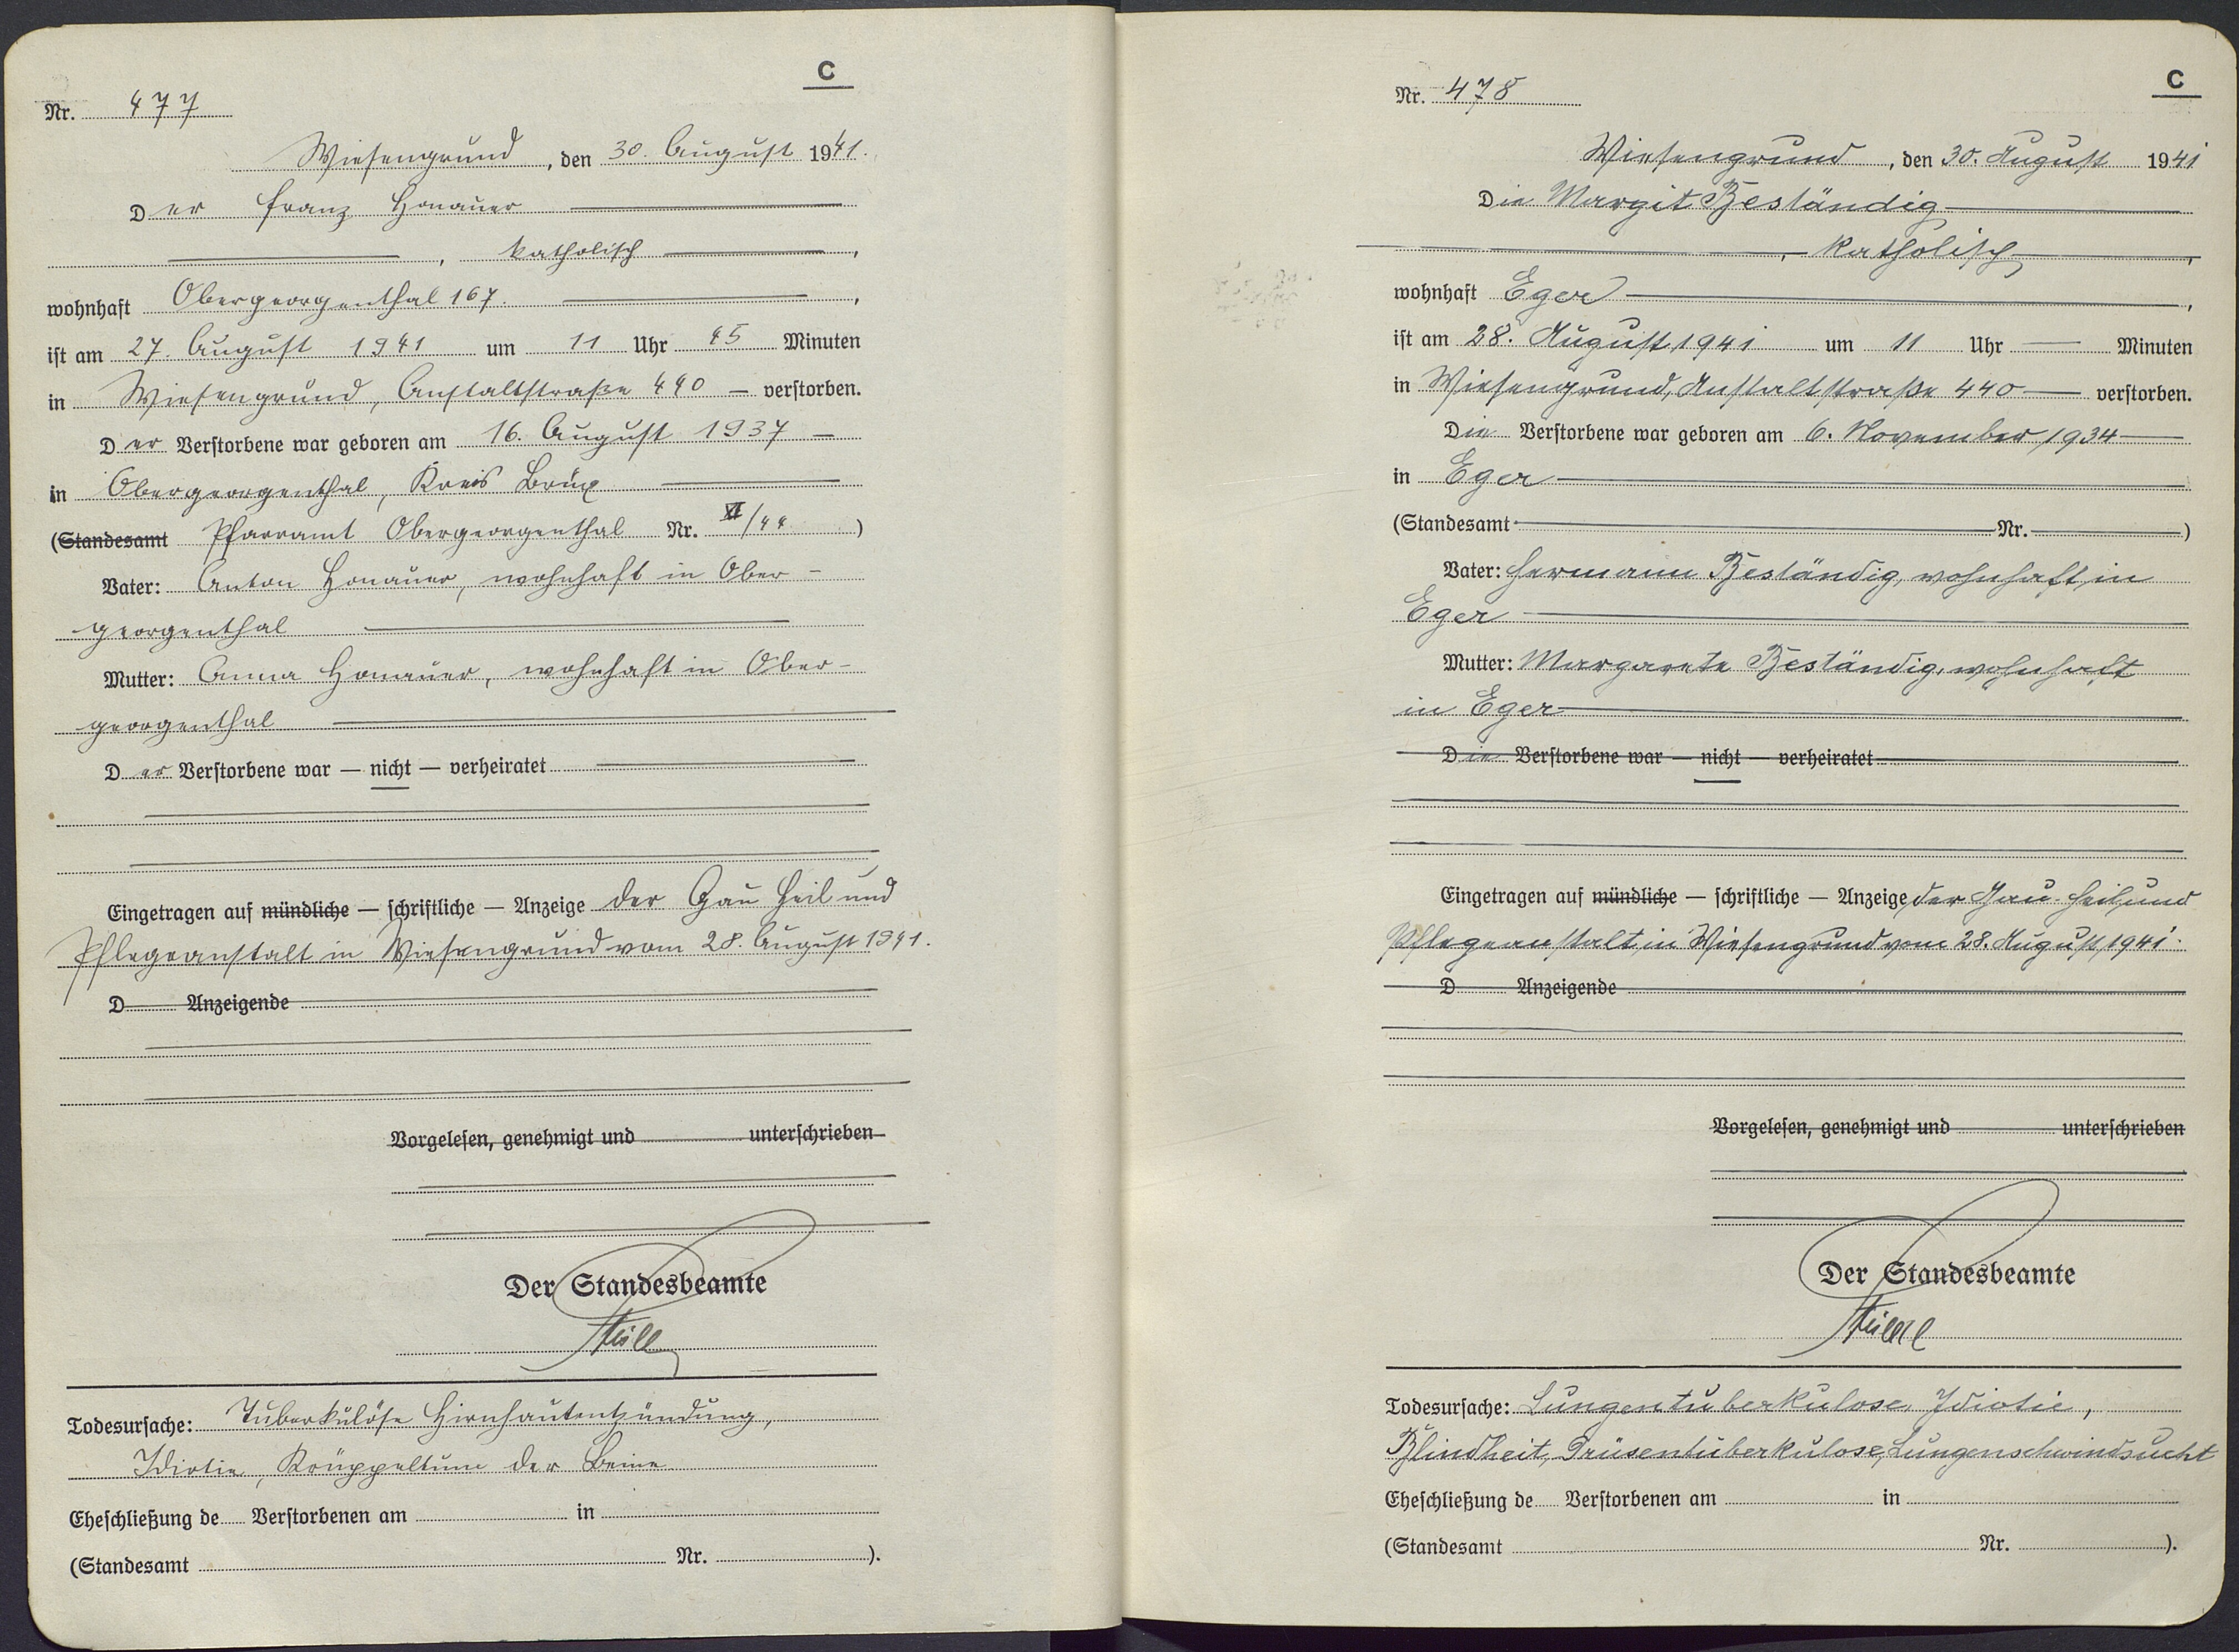 C
Nr. 477
Wiesengrund, den 30. August 1941.
Der Franz Honauer
, katholisch,
wohnhaft Obergeorgenthal 167.,
ist am 27. August 1941 um 11 Uhr 45 Minuten
in Wiesengrund, Anstaltstraße 440 – verstorben.
Der Verstorbene war geboren am 16. August 1937 –
in Obergeorgenthal, Kreis Brüx
(Standesamt Pfarramt Obergeorgenthal Nr. XI/44)
Vater: Anton Honauer, wohnhaft in Ober-
georgenthal
Mutter: Anna Honauer, wohnhaft in Ober-
georgenthal
Der Verstorbene war — nicht — verheiratet
Eingetragen auf mündliche — schriftliche — Anzeige der Gau Heil und
Pflegeanstalt in Wiesengrund vom 28. August 1941.
D Anzeigende
Vorgelesen, genehmigt und unterschrieben
Der Standesbeamte
Todesursache: Tuberkulöse Hirnhautentzündung,
Idiotie, Krüppeltum der Beine
Eheschließung de Verstorbenen am in
(Standesamt Nr. ).
C
Nr. 478
Wiesengrund, den 30. August 1941
Die Margit Beständig
, katholisch,
wohnhaft Eger,
ist am 28. August 1941 um 11 Uhr — Minuten
in Wiesengrund, Anstaltstraße 440 — verstorben.
Die Verstorbene war geboren am 6. November 1934
in Eger
(Standesamt Nr. )
Vater: Hermann Beständig, wohnhaft in
Eger
Mutter: Margarete Beständig, wohnhaft
in Eger
Die Verstorbene war — nicht — verheiratet
Eingetragen auf mündliche — schriftliche — Anzeige der Gau-Heil und
Pflegeanstalt in Wiesengrund vom 28. August 1941.
D Anzeigende
Vorgelesen, genehmigt und unterschrieben
Der Standesbeamte
Todesursache: Lungentuberkulose, Idiotie,
Blindheit, Drüsentuberkulose, Lungenschwindsucht
Eheschließung de Verstorbenen am in
(Standesamt Nr. ).